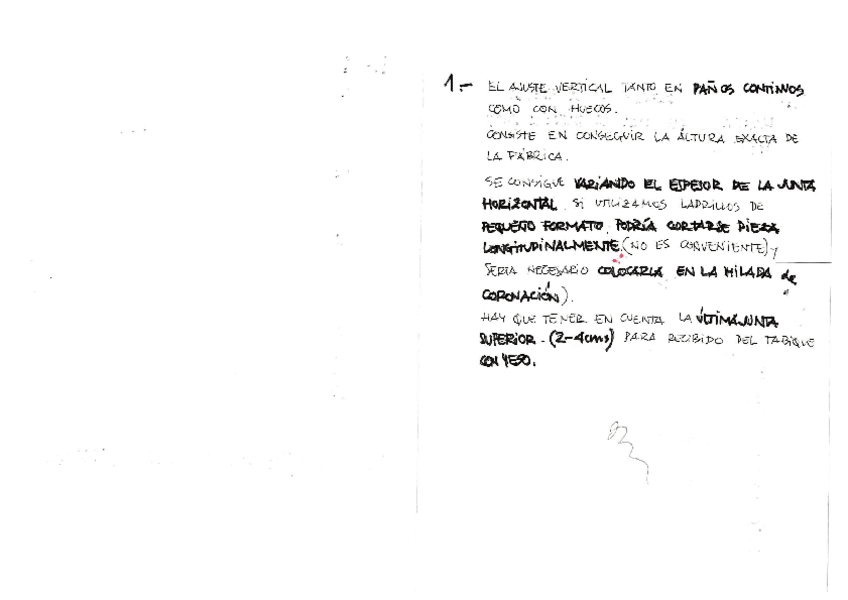 1.- EL AJUSTE VERTICAL TANTO EN PAÑOS CONTINUOS
COMO CON HUECOS.
CONSISTE EN CONSEGUIR LA ALTURA EXACTA DE
LA FÁBRICA.
SE CONSIGUE VARIANDO EL ESPESOR DE LA JUNTA
HORIZONTAL. SI UTILIZAMOS LADRILLOS DE
PEQUEÑO FORMATO, PODRÍA CORTARSE PIEZA
LONGITUDINALMENTE. (NO ES CONVENIENTE) y
SERIA NECESARIO COLOCARLA EN LA HILADA de
CORONACIÓN).
HAY QUE TENER EN CUENTA LA ÚLTIMA JUNTA
SUPERIOR. (2-4cms) PARA RECIBIDO DEL TABIQUE
CON YESO.